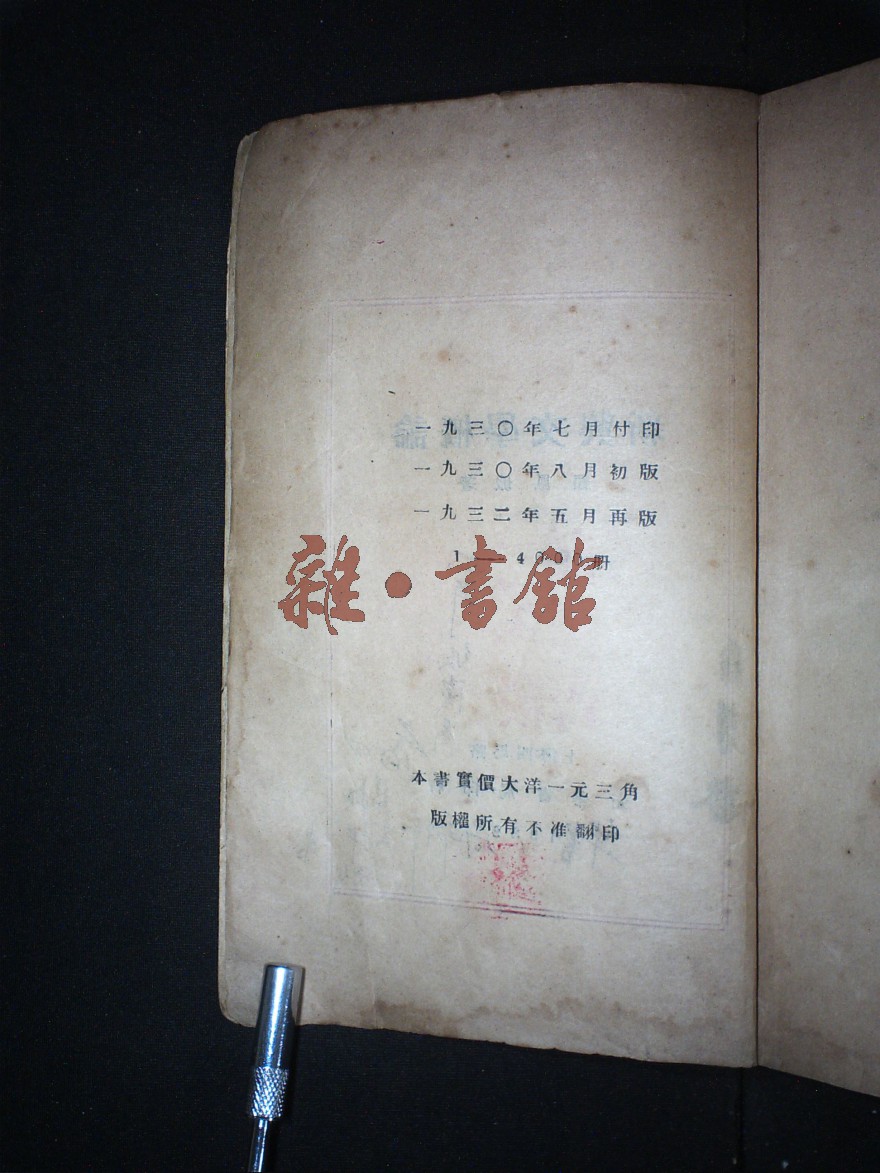 一九三〇年七月付印
一九三〇年八月初版
一九三二年五月再版
1—4000册
雜·書館
本書實價大洋一元三角
版權所有不准翻印